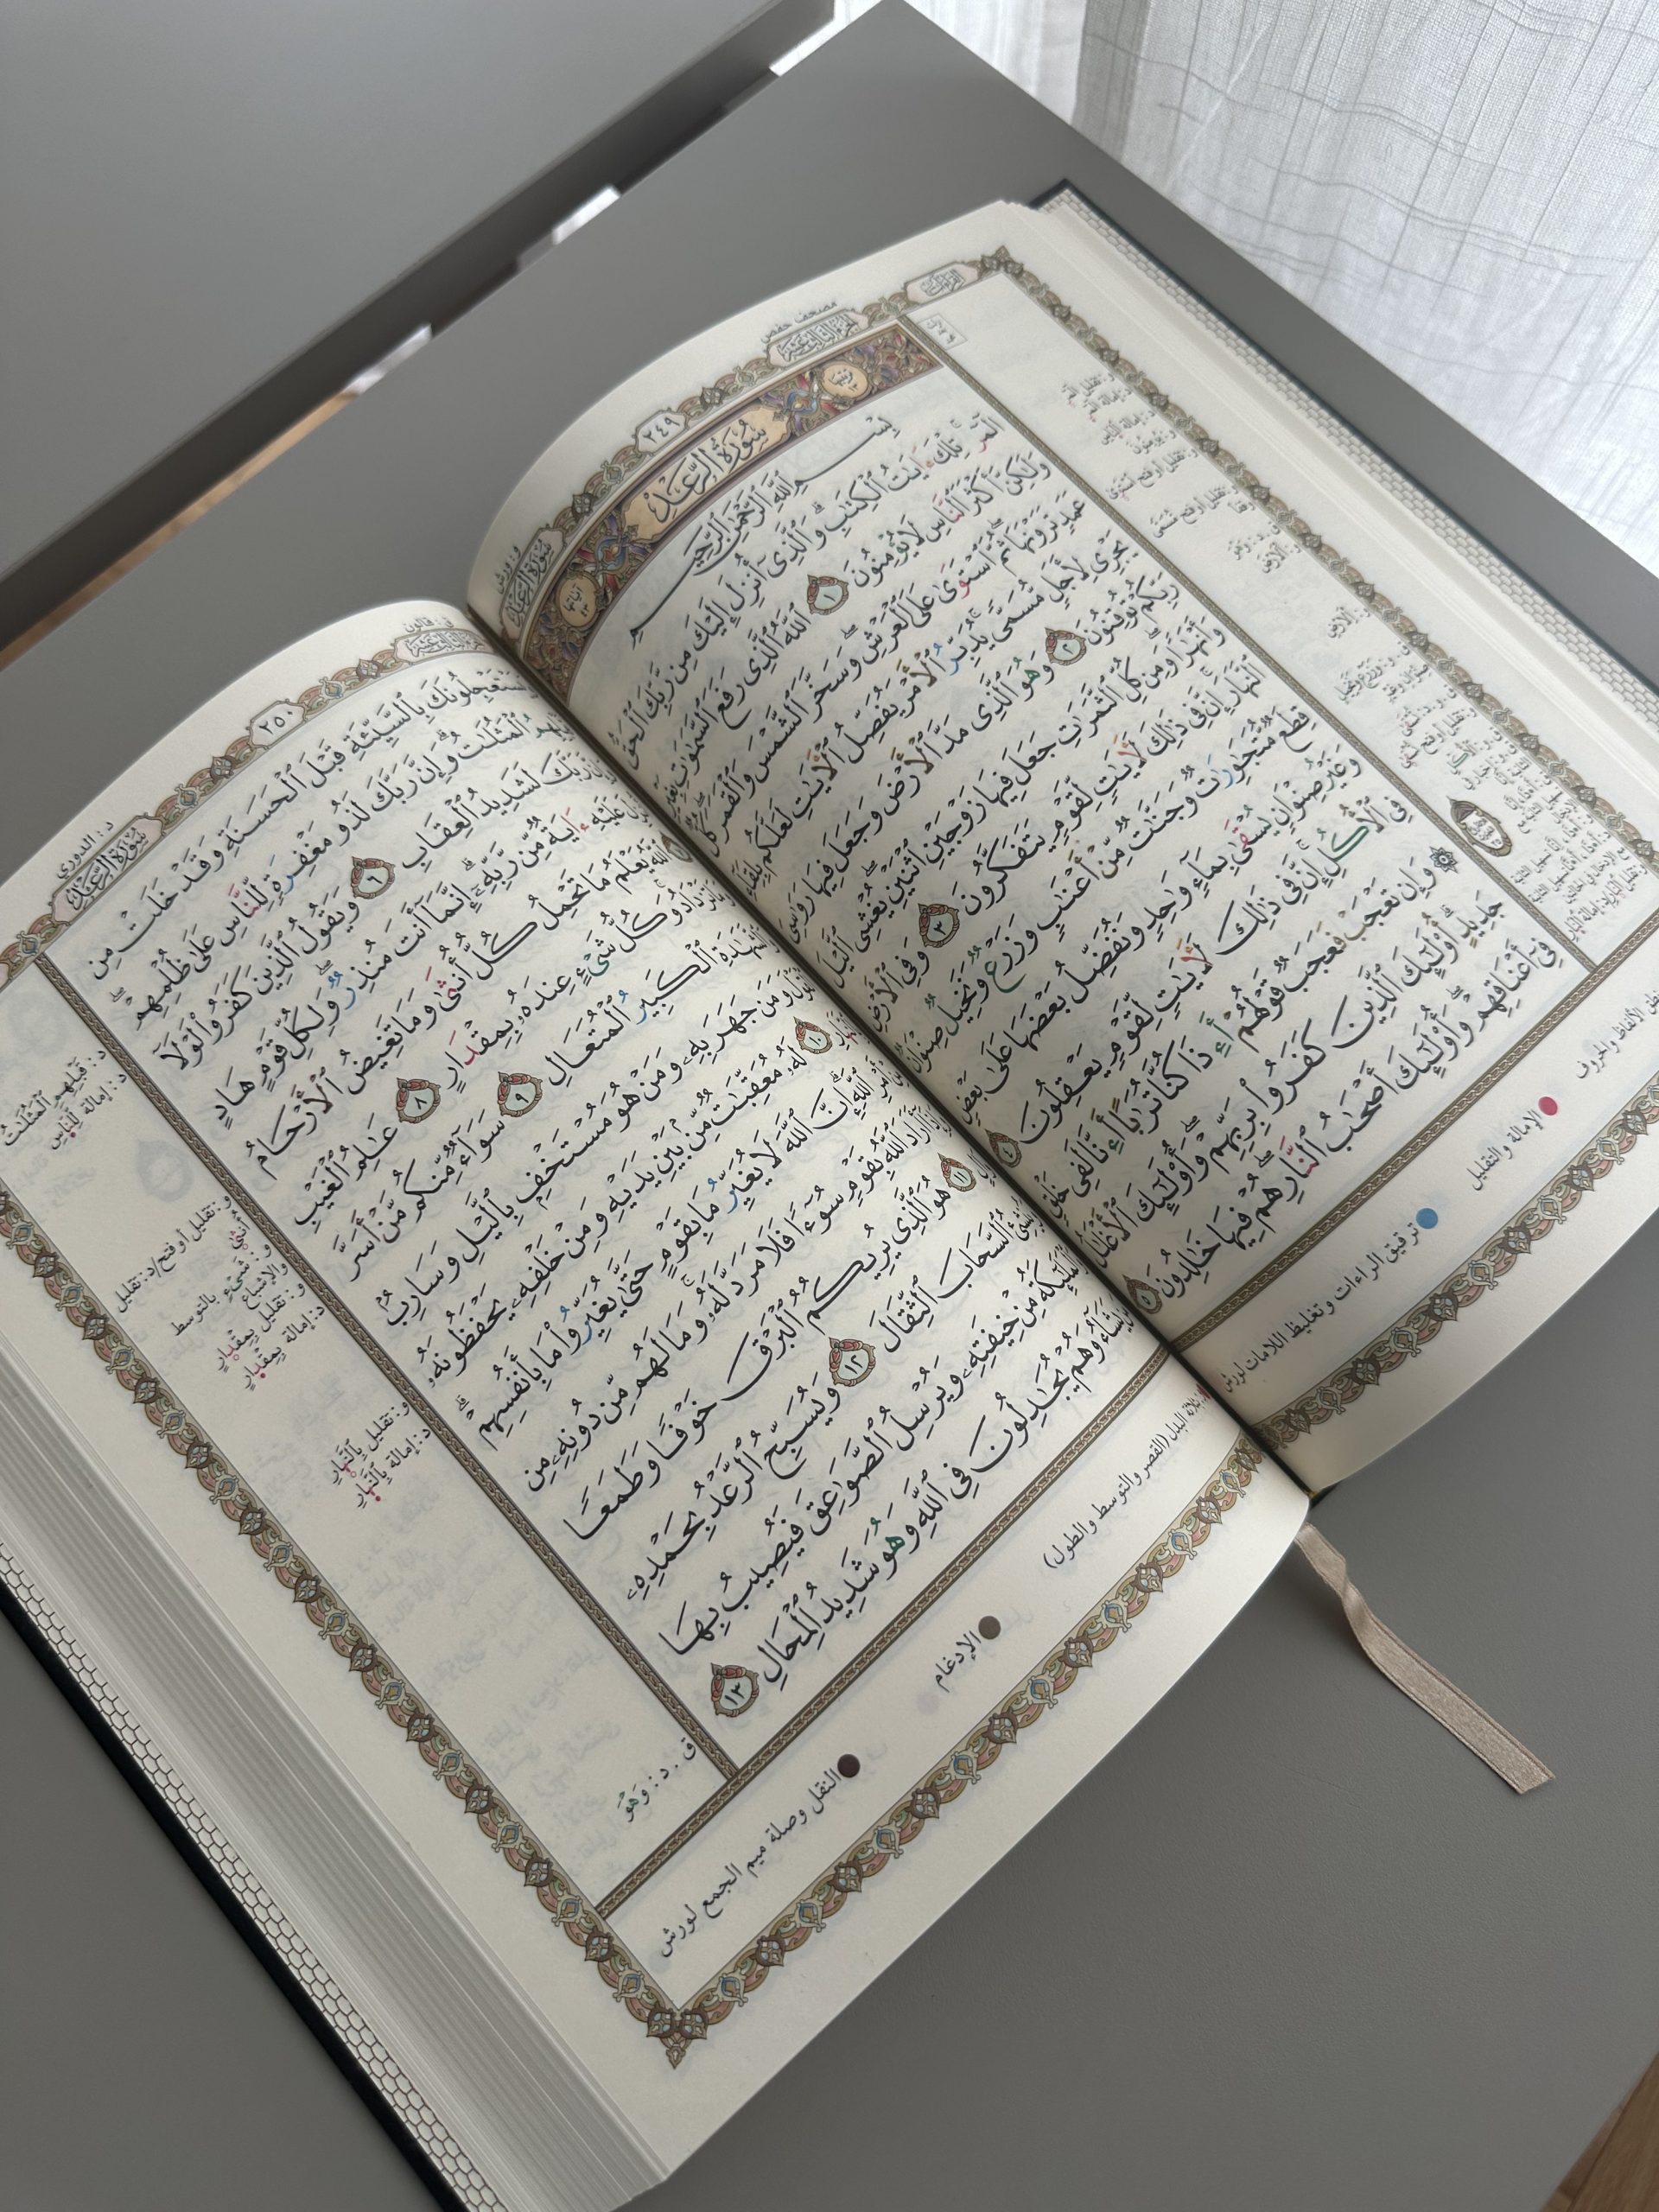 مصحف حفص
الجزء الثالث عشر
٢٤٩
و: ورش
سورة الرعد
ترتيبها ١٣
سُورَةُ الرَّعْدِ
آياتها ٤٣
بِسْمِ ٱللَّهِ ٱلرَّحْمَٰنِ ٱلرَّحِيمِ
الٓمٓر ۚ تِلْكَ ءَايَٰتُ ٱلْكِتَٰبِ ۗ وَٱلَّذِىٓ أُنزِلَ إِلَيْكَ مِن رَّبِّكَ ٱلْحَقُّ
وَلَٰكِنَّ أَكْثَرَ ٱلنَّاسِ لَا يُؤْمِنُونَ ١ ٱللَّهُ ٱلَّذِى رَفَعَ ٱلسَّمَٰوَٰتِ بِغَيْرِ
عَمَدٍ تَرَوْنَهَا ۖ ثُمَّ ٱسْتَوَىٰ عَلَى ٱلْعَرْشِ ۖ وَسَخَّرَ ٱلشَّمْسَ وَٱلْقَمَرَ ۖ كُلٌّ
يَجْرِى لِأَجَلٍ مُّسَمًّى ۚ يُدَبِّرُ ٱلْأَمْرَ يُفَصِّلُ ٱلْءَايَٰتِ لَعَلَّكُم بِلِقَآءِ
رَبِّكُمْ تُوقِنُونَ ٢ وَهُوَ ٱلَّذِى مَدَّ ٱلْأَرْضَ وَجَعَلَ فِيهَا رَوَٰسِىَ
وَأَنْهَٰرًا ۖ وَمِن كُلِّ ٱلثَّمَرَٰتِ جَعَلَ فِيهَا زَوْجَيْنِ ٱثْنَيْنِ ۖ يُغْشِى ٱلَّيْلَ
ٱلنَّهَارَ ۚ إِنَّ فِى ذَٰلِكَ لَءَايَٰتٍ لِّقَوْمٍ يَتَفَكَّرُونَ ٣ وَفِى ٱلْأَرْضِ
قِطَعٌ مُّتَجَٰوِرَٰتٌ وَجَنَّٰتٌ مِّنْ أَعْنَٰبٍ وَزَرْعٌ وَنَخِيلٌ صِنْوَانٌ
وَغَيْرُ صِنْوَانٍ يُسْقَىٰ بِمَآءٍ وَٰحِدٍ وَنُفَضِّلُ بَعْضَهَا عَلَىٰ بَعْضٍ
فِى ٱلْأُكُلِ ۚ إِنَّ فِى ذَٰلِكَ لَءَايَٰتٍ لِّقَوْمٍ يَعْقِلُونَ ٤
۞ وَإِن تَعْجَبْ فَعَجَبٌ قَوْلُهُمْ أَءِذَا كُنَّا تُرَٰبًا أَءِنَّا لَفِى خَلْقٍ
جَدِيدٍ ۗ أُو۟لَٰٓئِكَ ٱلَّذِينَ كَفَرُوا۟ بِرَبِّهِمْ ۖ وَأُو۟لَٰٓئِكَ ٱلْأَغْلَٰلُ
فِىٓ أَعْنَاقِهِمْ ۖ وَأُو۟لَٰٓئِكَ أَصْحَٰبُ ٱلنَّارِ ۖ هُمْ فِيهَا خَٰلِدُونَ ٥
و: تقليل أو فتح
الإمالة والتقليل
ترقيق الراءات وتغليظ اللامات لورش
ق: قالون
٢٥٠
د: الدوري
سُورَةُ الرَّعْدِ
يَسْتَعْجِلُونَكَ بِٱلسَّيِّئَةِ قَبْلَ ٱلْحَسَنَةِ وَقَدْ خَلَتْ مِن
قَبْلِهِمُ ٱلْمَثُلَٰتُ ۗ وَإِنَّ رَبَّكَ لَذُو مَغْفِرَةٍ لِّلنَّاسِ عَلَىٰ ظُلْمِهِمْ ۖ
وَإِنَّ رَبَّكَ لَشَدِيدُ ٱلْعِقَابِ ٦ وَيَقُولُ ٱلَّذِينَ كَفَرُوا۟ لَوْلَآ
أُنزِلَ عَلَيْهِ ءَايَةٌ مِّن رَّبِّهِۦٓ ۗ إِنَّمَآ أَنتَ مُنذِرٌ ۖ وَلِكُلِّ قَوْمٍ هَادٍ
ٱللَّهُ يَعْلَمُ مَا تَحْمِلُ كُلُّ أُنثَىٰ وَمَا تَغِيضُ ٱلْأَرْحَامُ
وَمَا تَزْدَادُ ۖ وَكُلُّ شَىْءٍ عِندَهُۥ بِمِقْدَارٍ ٨ عَٰلِمُ ٱلْغَيْبِ
وَٱلشَّهَٰدَةِ ٱلْكَبِيرُ ٱلْمُتَعَالِ ٩ سَوَآءٌ مِّنكُم مَّنْ أَسَرَّ
ٱلْقَوْلَ وَمَن جَهَرَ بِهِۦ وَمَنْ هُوَ مُسْتَخْفٍۭ بِٱلَّيْلِ وَسَارِبٌۢ
١٠ لَهُۥ مُعَقِّبَٰتٌ مِّنۢ بَيْنِ يَدَيْهِ وَمِنْ خَلْفِهِۦ يَحْفَظُونَهُۥ
مِنْ أَمْرِ ٱللَّهِ ۗ إِنَّ ٱللَّهَ لَا يُغَيِّرُ مَا بِقَوْمٍ حَتَّىٰ يُغَيِّرُوا۟ مَا بِأَنفُسِهِمْ ۗ
وَإِذَآ أَرَادَ ٱللَّهُ بِقَوْمٍ سُوٓءًا فَلَا مَرَدَّ لَهُۥ ۚ وَمَا لَهُم مِّن دُونِهِۦ مِن
١١ هُوَ ٱلَّذِى يُرِيكُمُ ٱلْبَرْقَ خَوْفًا وَطَمَعًا
وَيُنشِئُ ٱلسَّحَابَ ٱلثِّقَالَ ١٢ وَيُسَبِّحُ ٱلرَّعْدُ بِحَمْدِهِۦ
وَٱلْمَلَٰٓئِكَةُ مِنْ خِيفَتِهِۦ وَيُرْسِلُ ٱلصَّوَٰعِقَ فَيُصِيبُ بِهَا
مَن يَشَآءُ وَهُمْ يُجَٰدِلُونَ فِى ٱللَّهِ وَهُوَ شَدِيدُ ٱلْمِحَالِ ١٣
د: قَبْلِهِمِ ٱلْمَثُلَٰتُ
د: إمالة لِلنَّاسِ
و: تقليل أو فتح/د: تقليل
أُنثَىٰ
و: شَىْءٍ بالتوسط
والإشباع
و: تقليل بِمِقْدَارٍ
د: إمالة بِمِقْدَارٍ
و: تقليل بِالنَّهَارِ
د: إمالة بِالنَّهَارِ
ق . د: وَهْوَ
ثلاثة البدل (القصر والتوسط والطول)
الإدغام
النقل وصلة ميم الجمع لورش